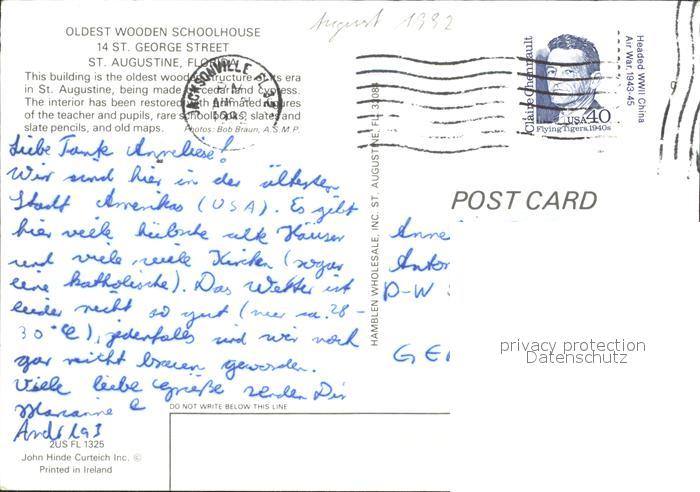 August 1992
OLDEST WOODEN SCHOOLHOUSE
14 ST. GEORGE STREET
ST. AUGUSTINE, FLORIDA
This building is the oldest wooden structure of its era
in St. Augustine, being made of cedar and cypress.
The interior has been restored with animated figures
of the teacher and pupils, rare school books, slates and
slate pencils, and old maps. Photos: Bob Braun, A.S.M.P.
JACKSONVILLE
Liebe Tante Anneliese!
Wir sind hier in der ältesten
Stadt Amerikas (USA). Es gibt
hier viele hübsche alte Häuser
und viele, viele Kirchen (sogar
eine katholische). Das Wetter ist
leider nicht so gut (nur ca. 28-
30°C), jedenfalls sind wir noch
gar nicht braun geworden.
Viele liebe Grüße senden Dir
Marianne &
Andreas
2US FL 1325
John Hinde Curteich Inc. ©
Printed in Ireland
DO NOT WRITE BELOW THIS LINE
HAMBLEN WHOLESALE, INC. ST. AUGUSTINE, FL 32084
Claire Chennault
USA 40
Flying Tigers, 1940s
Headed WWII China
Air War, 1943-45
POST CARD
Anne
Anto
D-W
GE
privacy protection
Datenschutz